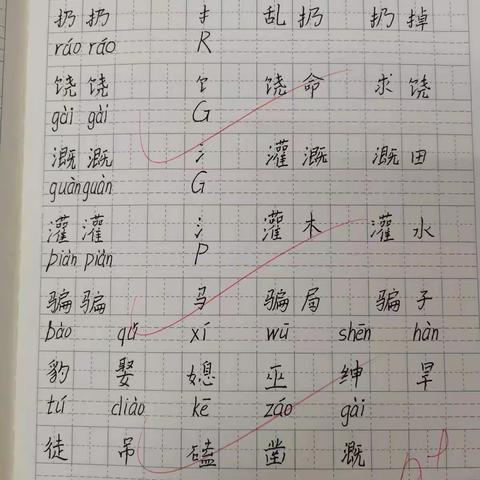 扔 扔 扌 乱 扔 扔 掉
ráo ráo R
饶 饶 饣 饶 命 求 饶
gài gài G
溉 溉 氵 灌 溉 溉 田
guàn guàn G
灌 灌 氵 灌 木 灌 水
piàn piàn P
骗 骗 马 骗 局 骗 子
bào qǔ xí wū shēn hàn
豹 娶 媳 巫 绅 旱
tú diào kē záo gài
徒 吊 磕 凿 溉